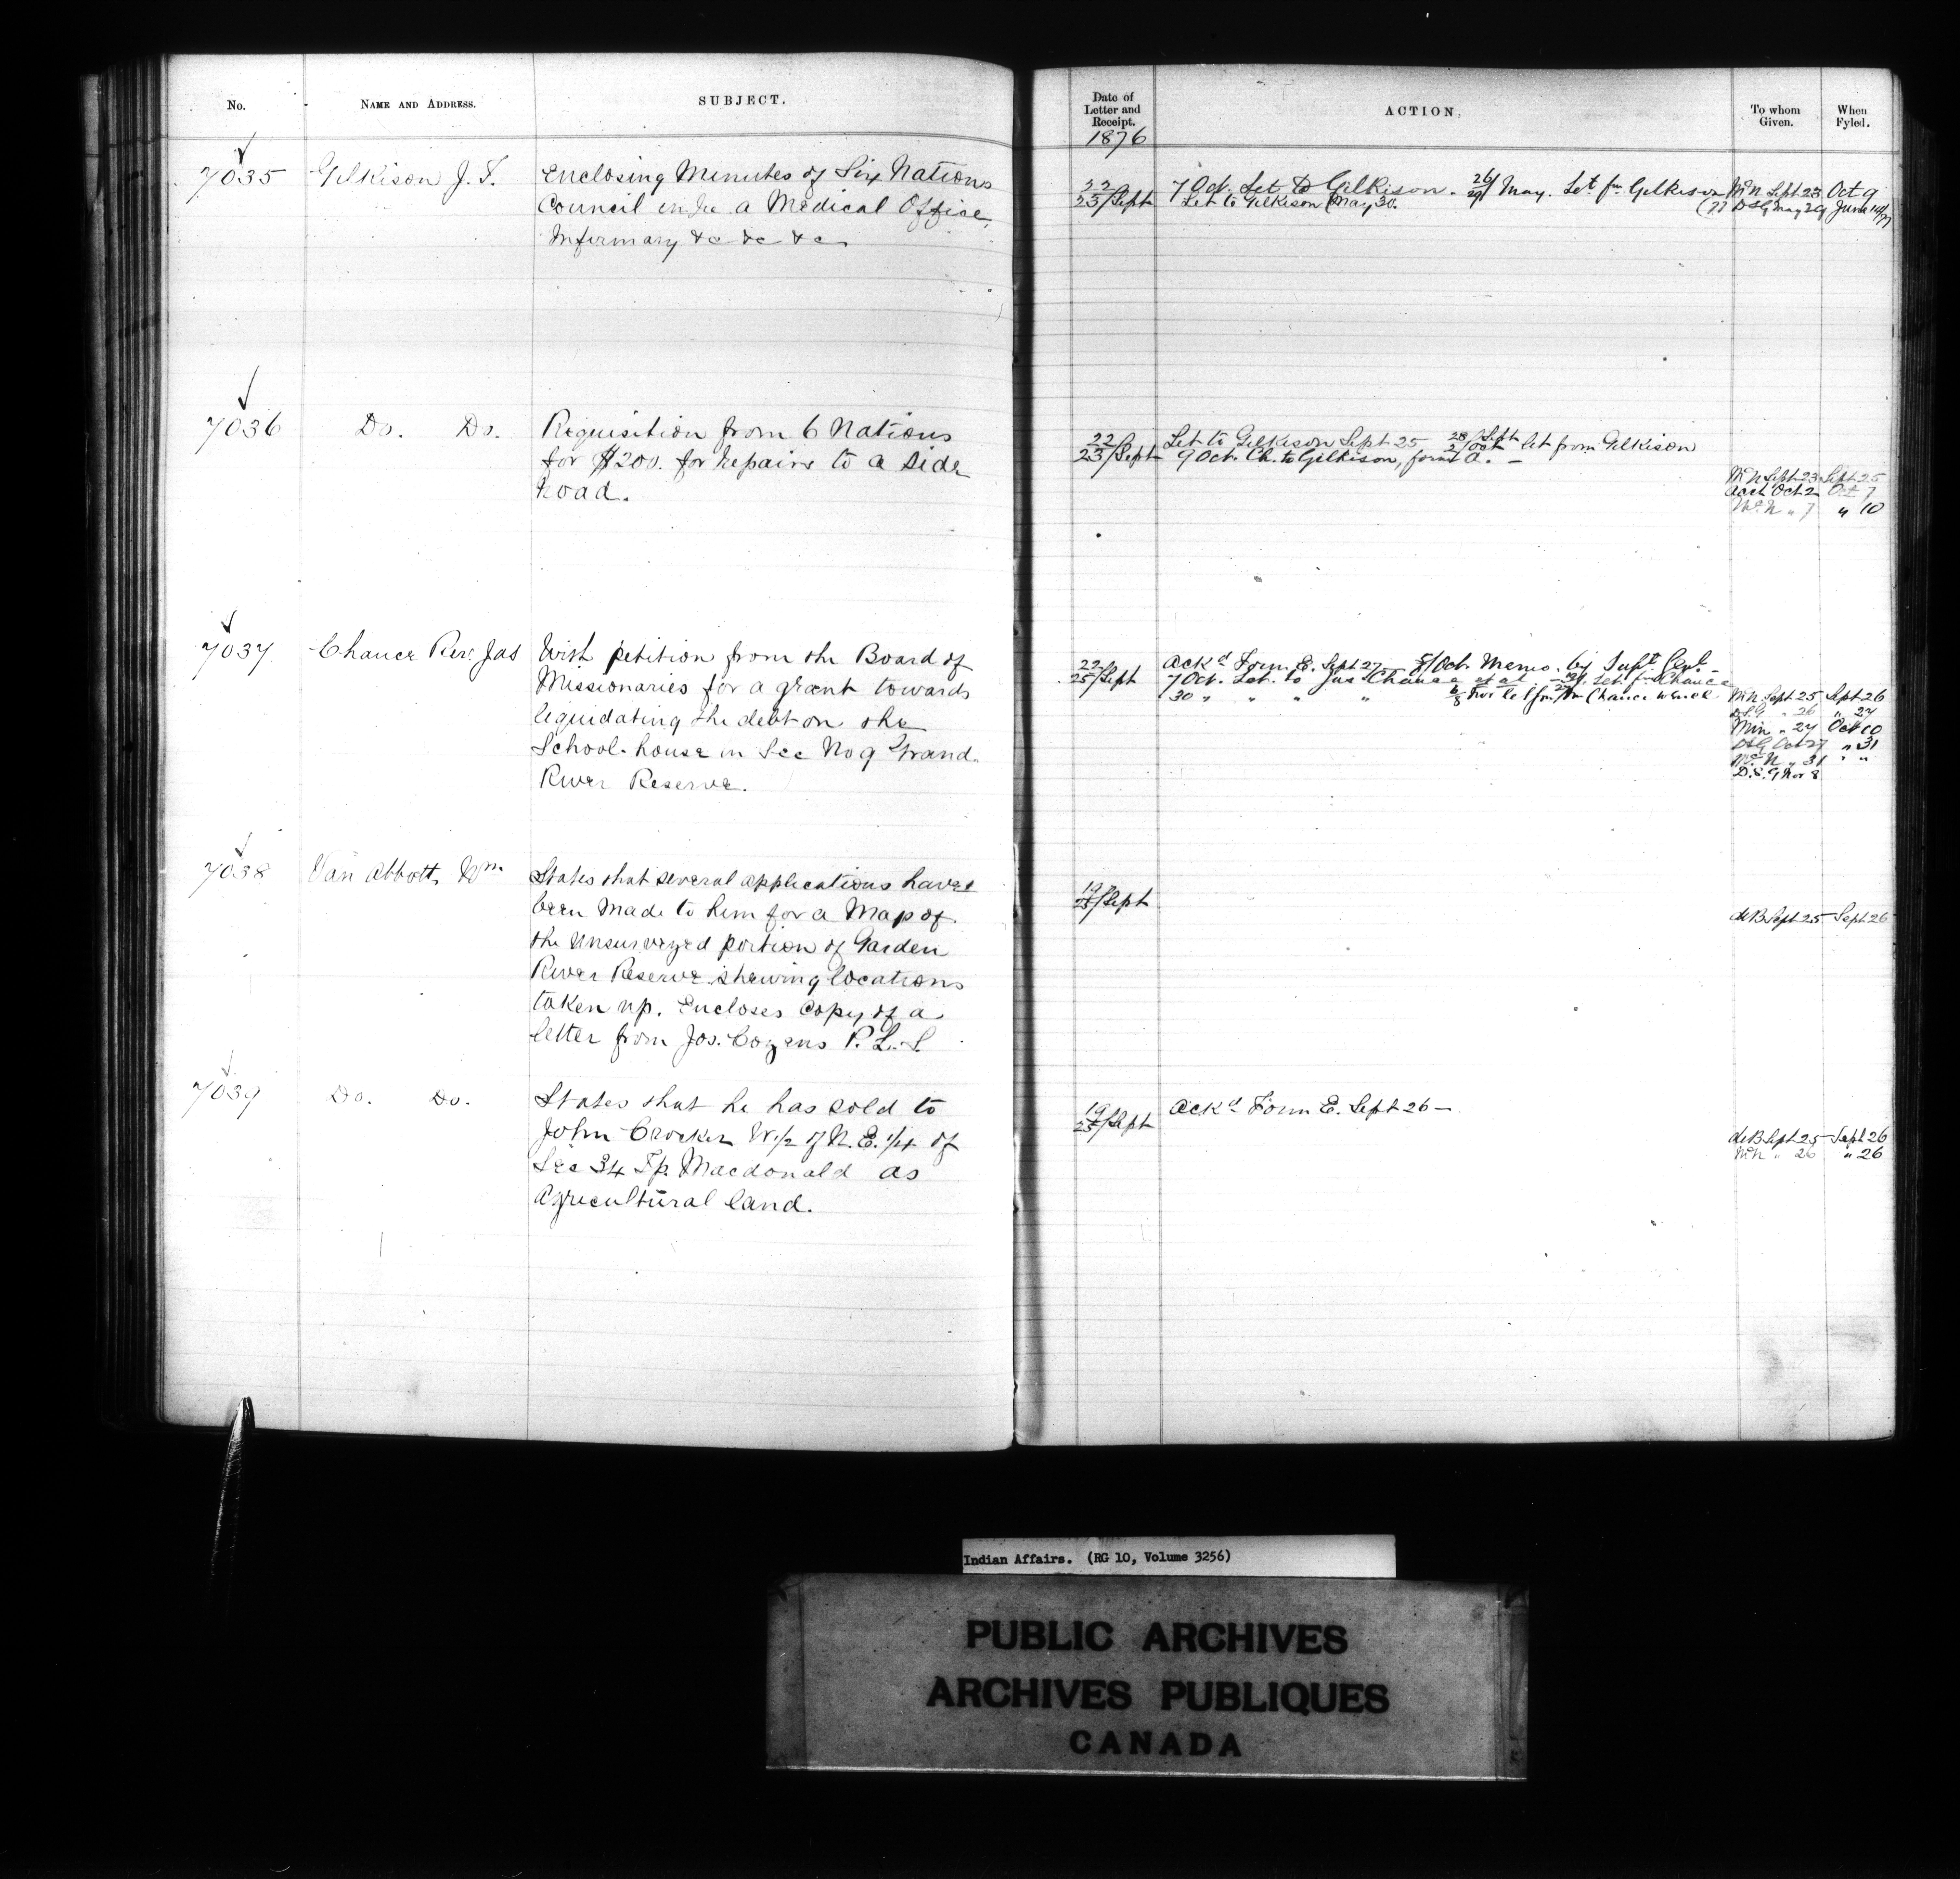 No.
NAME AND ADDRESS.
SUBJECT.
7035
Gilkison J. T.
Enclosing Minutes of Six Nations
Council in re a Medical Office,
Infirmary &c &c &c
7036
Do. Do.
Requisition from 6 Nations
for $200. for repairs to a side
road.
7037
Chance Rev. Jas
With petition from the Board of
Missionaries for a grant towards
liquidating the debt on the
School-house in Sec No 9 Grand
River Reserve.
7038
Van Abbott, Wm
States that several applications have
been made to him for a Map of
the Unsurveyed portion of Garden
River Reserve shewing locations
taken up. Encloses copy of a
letter from Jos. Cozens P. L. S.
7039
Do. Do.
States that he has sold to
John Crocker W. 1/2 of N. E. 1/4 of
Sec 34 Tp. Macdonald as
Agricultural land.
Date of
Letter and
Receipt.
1876
ACTION.
To whom
Given.
When
Fyled.
22
23/Sept
7 Oct. Let to Gilkison. 26/29 May. Let fm Gilkison
Let to Gilkison May 30.
McN Sept 23 Oct 9
(77 DSG May 29 June 14/77
22
23/Sept
Let to Gilkison Sept 25 28/Sept 2/Oct let from Gilkison
9 Oct. Ch. to Gilkison, form A. —
McN Sept 23 Sept 25
Acct Oct 2 Oct 7
McN " 7 " 10
22
25/Sept
Ackd Form E. Sept 27 — Oct. Memo. by Supt Genl —
7 Oct. Let. to Jas Chance et al. Let fm Chance
30 " " " " Nov let fm Chance
McN Sept 25 Sept 26
DSG " 26 " 27
Min " 27 Oct 10
DSG Oct 27 " 31
McN " 31 " "
D.S.G Nov 8
19
25/Sept
deB Sept 25 Sept 26
19
25/Sept
Ackd Form E. Sept 26 —
deB Sept 25 Sept 26
McN " 26 " 26
Indian Affairs. (RG 10, Volume 3256)
PUBLIC ARCHIVES
ARCHIVES PUBLIQUES
CANADA